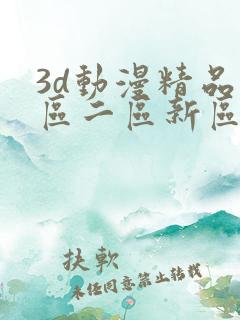 3d動漫精品
區二區新區
扶軟
未經同意禁止轉載